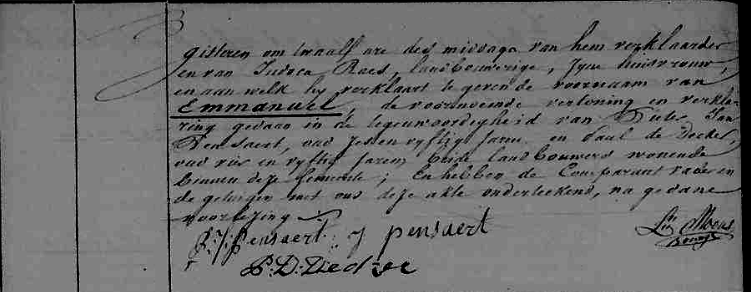 gisteren om twaalf ure des middags van hem verklaarder
en van Judoca Raes, landbouwerige, zyne huisvrouw,
en aan welk hy verklaart te geven de voornaam van
Emmanuel, de voornoemde vertooning en verkla-
ring gedaan in de tegenwoordigheid van Petrus Jan
Pensaert, oud zessen vyftig jaren en Paul de Decker,
oud en vyftig jaren beide landbouwers wonende
binnen deze Gemeente; En hebben de Comparant vader en
de getuigen met ons deze akte onderteekend, na gedane
voorlezing
P. J. Pensaert J pensaert
P. D. Decker